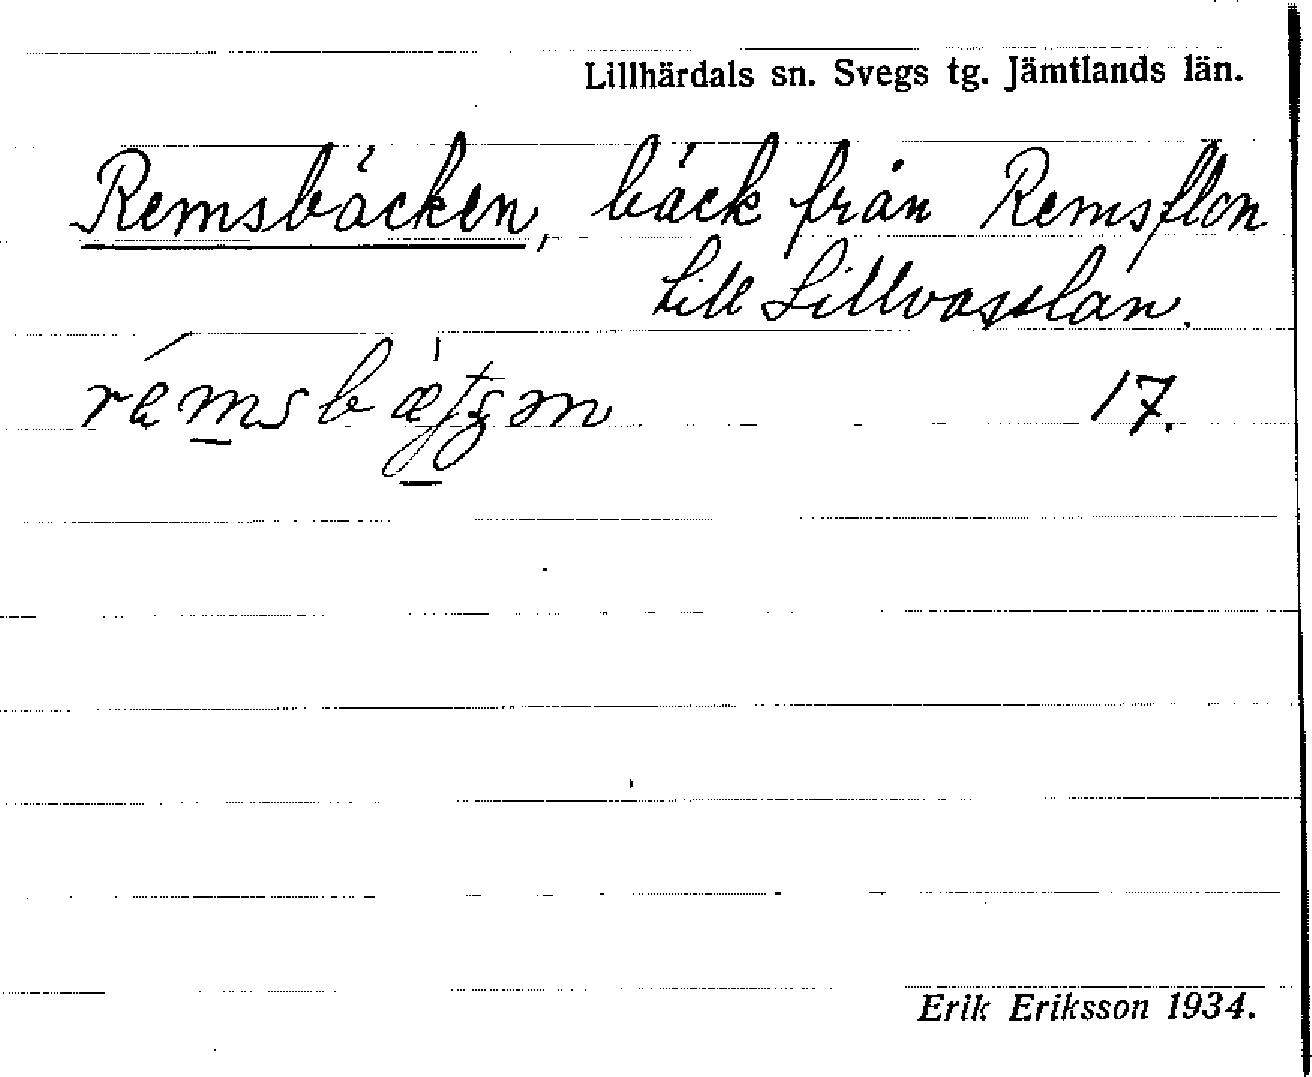 Lillhärdals sn. Svegs tg. Jämtlands län.
Remsbäcken, bäck från Remsflon
till Lillvasslan.
17.
Erik Eriksson 1934.